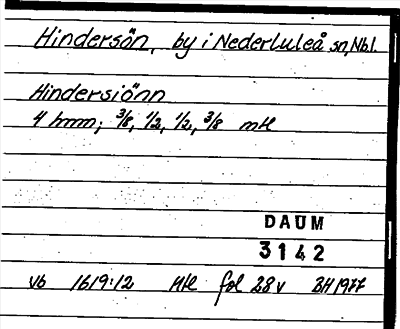 Hindersön, by i Nederluleå sn, Nbl.
Hindersiönn
4 hmn; 3/8, 1/2, 1/2, 3/8 mtl
DAUM
3142
Vb 1619:12 Mtl fol 28v BH 1977